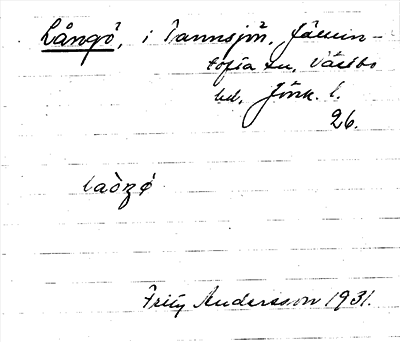 Långö, i Tannsjön, Järvin-
sofia sn, Västbo
hd, Jönk. l.
26.
laǒzǿ
Fritz Andersson 1931.